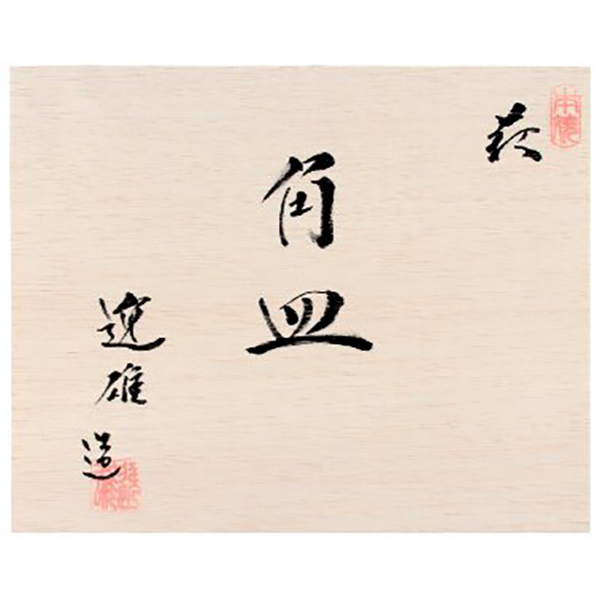 萩
角皿
逸雄造